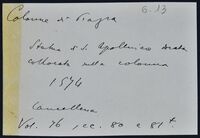 G. 13
Colonne di Piazza
Statua di S. Apollinare
collocata sulla colonna
1574
Cancelleria
Vol. 76, cc. 80 e 81